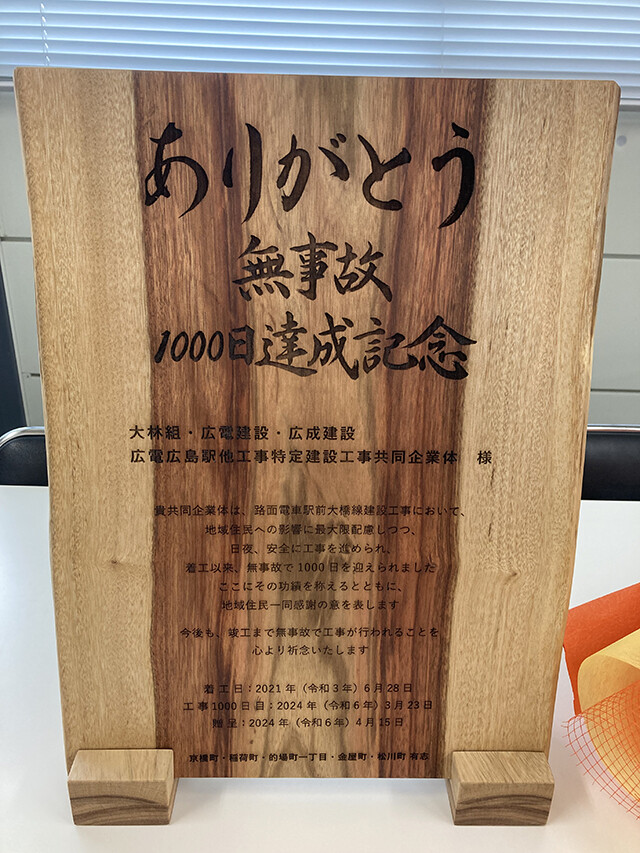 ありがとう
無事故
1000日達成記念
大林組・広電建設・広成建設
広電広島駅他工事特定建設工事共同企業体 様
貴共同企業体は、路面電車駅前大橋線建設工事において、
地域住民への影響に最大限配慮しつつ、
日夜、安全に工事を進められ、
着工以来、無事故で1000日を迎えられました
ここにその功績を称えるとともに、
地域住民一同感謝の意を表します
今後も、竣工まで無事故で工事が行われることを
心より祈念いたします
着工日：2021年（令和3年）6月28日
工事1000日目：2024年（令和6年）3月23日
贈呈：2024年（令和6年）4月15日
京橋町・稲荷町・的場町一丁目・金屋町・松川町 有志